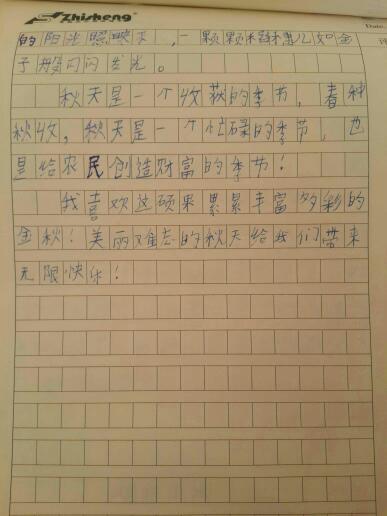 Zhisheng
Date.
的阳光照映下,一颗颗稻穗儿如金
子般闪闪发光。
秋天是一个收获的季节,春种
秋收,秋天是一个忙碌的季节,也
是给农民创造财富的季节!
我喜欢这硕果累累丰富多彩的
金秋!美丽难忘的秋天给我们带来
无限快乐!